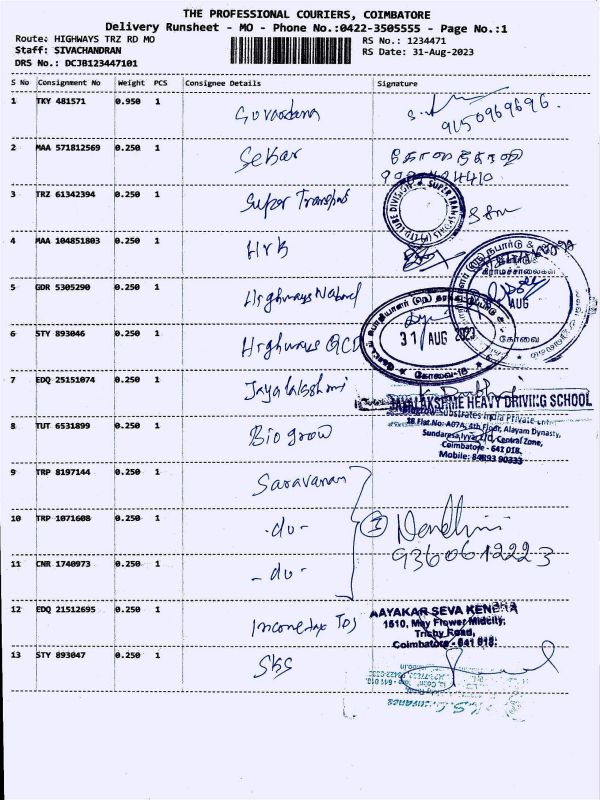 THE PROFESSIONAL COURIERS, COIMBATORE
Delivery Runsheet - MO - Phone No.:0422-3505555 - Page No.:1
Route: HIGHWAYS TRZ RD MO
RS No.: 1234471
Staff: SIVACHANDRAN
RS Date: 31-Aug-2023
DRS No.: DCJB123447101
S No Consignment No Weight PCS Consignee Details Signature
1 TKY 481571 0.950 1
9150969696.
2 MAA 571812569 0.250 1 Sekar
3 TRZ 61342394 0.250 1 Super Transports
SUPER TRANSPORTS (P) LTD LUBE DIVISION
4 MAA 104851803 0.250 1 HRB
5 GDR 5305290 0.250 1 Highways Nabard
AUG
கோவை
6 STY 893046 0.250 1 Highways QCD
31 AUG 2023
கோவை-18
7 EDQ 25151074 0.250 1 Jayalakshmi
JAYALAKSHME HEAVY DRIVING SCHOOL
8 TUT 6531899 0.250 1 Biogrow
Biogrow Substrates India Private
Flat No: A07A, 4th Floor, Alayam Dynasty,
Central Zone,
Coimbatore - 641 018.
Mobile: 84893 90333
9 TRP 8197144 0.250 1 Saravanan
10 TRP 1071608 0.250 1 -do-
3 Nandhini
9360612223
11 CNR 1740973 0.250 1 -do-
12 EDQ 21512695 0.250 1 Incometax TDS
AAYAKAR SEVA KENDRA
1510, May Flower Midcity,
Trichy Road,
Coimbatore - 641 018.
13 STY 893047 0.250 1 SKS